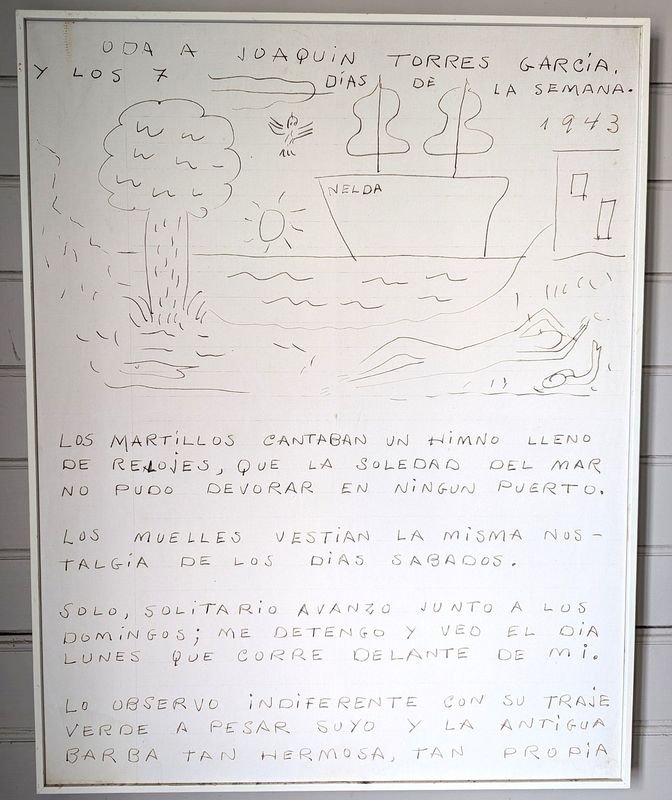 ODA A JOAQUIN TORRES GARCÍA,
Y LOS 7 DÍAS DE LA SEMANA.
1943
NELDA
LOS MARTILLOS CANTABAN UN HIMNO LLENO
DE RELOJES, QUE LA SOLEDAD DEL MAR
NO PUDO DEVORAR EN NINGUN PUERTO.
LOS MUELLES VESTIAN LA MISMA NOS-
TALGÍA DE LOS DIAS SABADOS.
SOLO, SOLITARIO AVANZO JUNTO A LOS
DOMINGOS; ME DETENGO Y VEO EL DIA
LUNES QUE CORRE DELANTE DE MI.
LO OBSERVO INDIFERENTE CON SU TRAJE
VERDE A PESAR SUYO Y LA ANTIGUA
BARBA TAN HERMOSA, TAN PROPIA